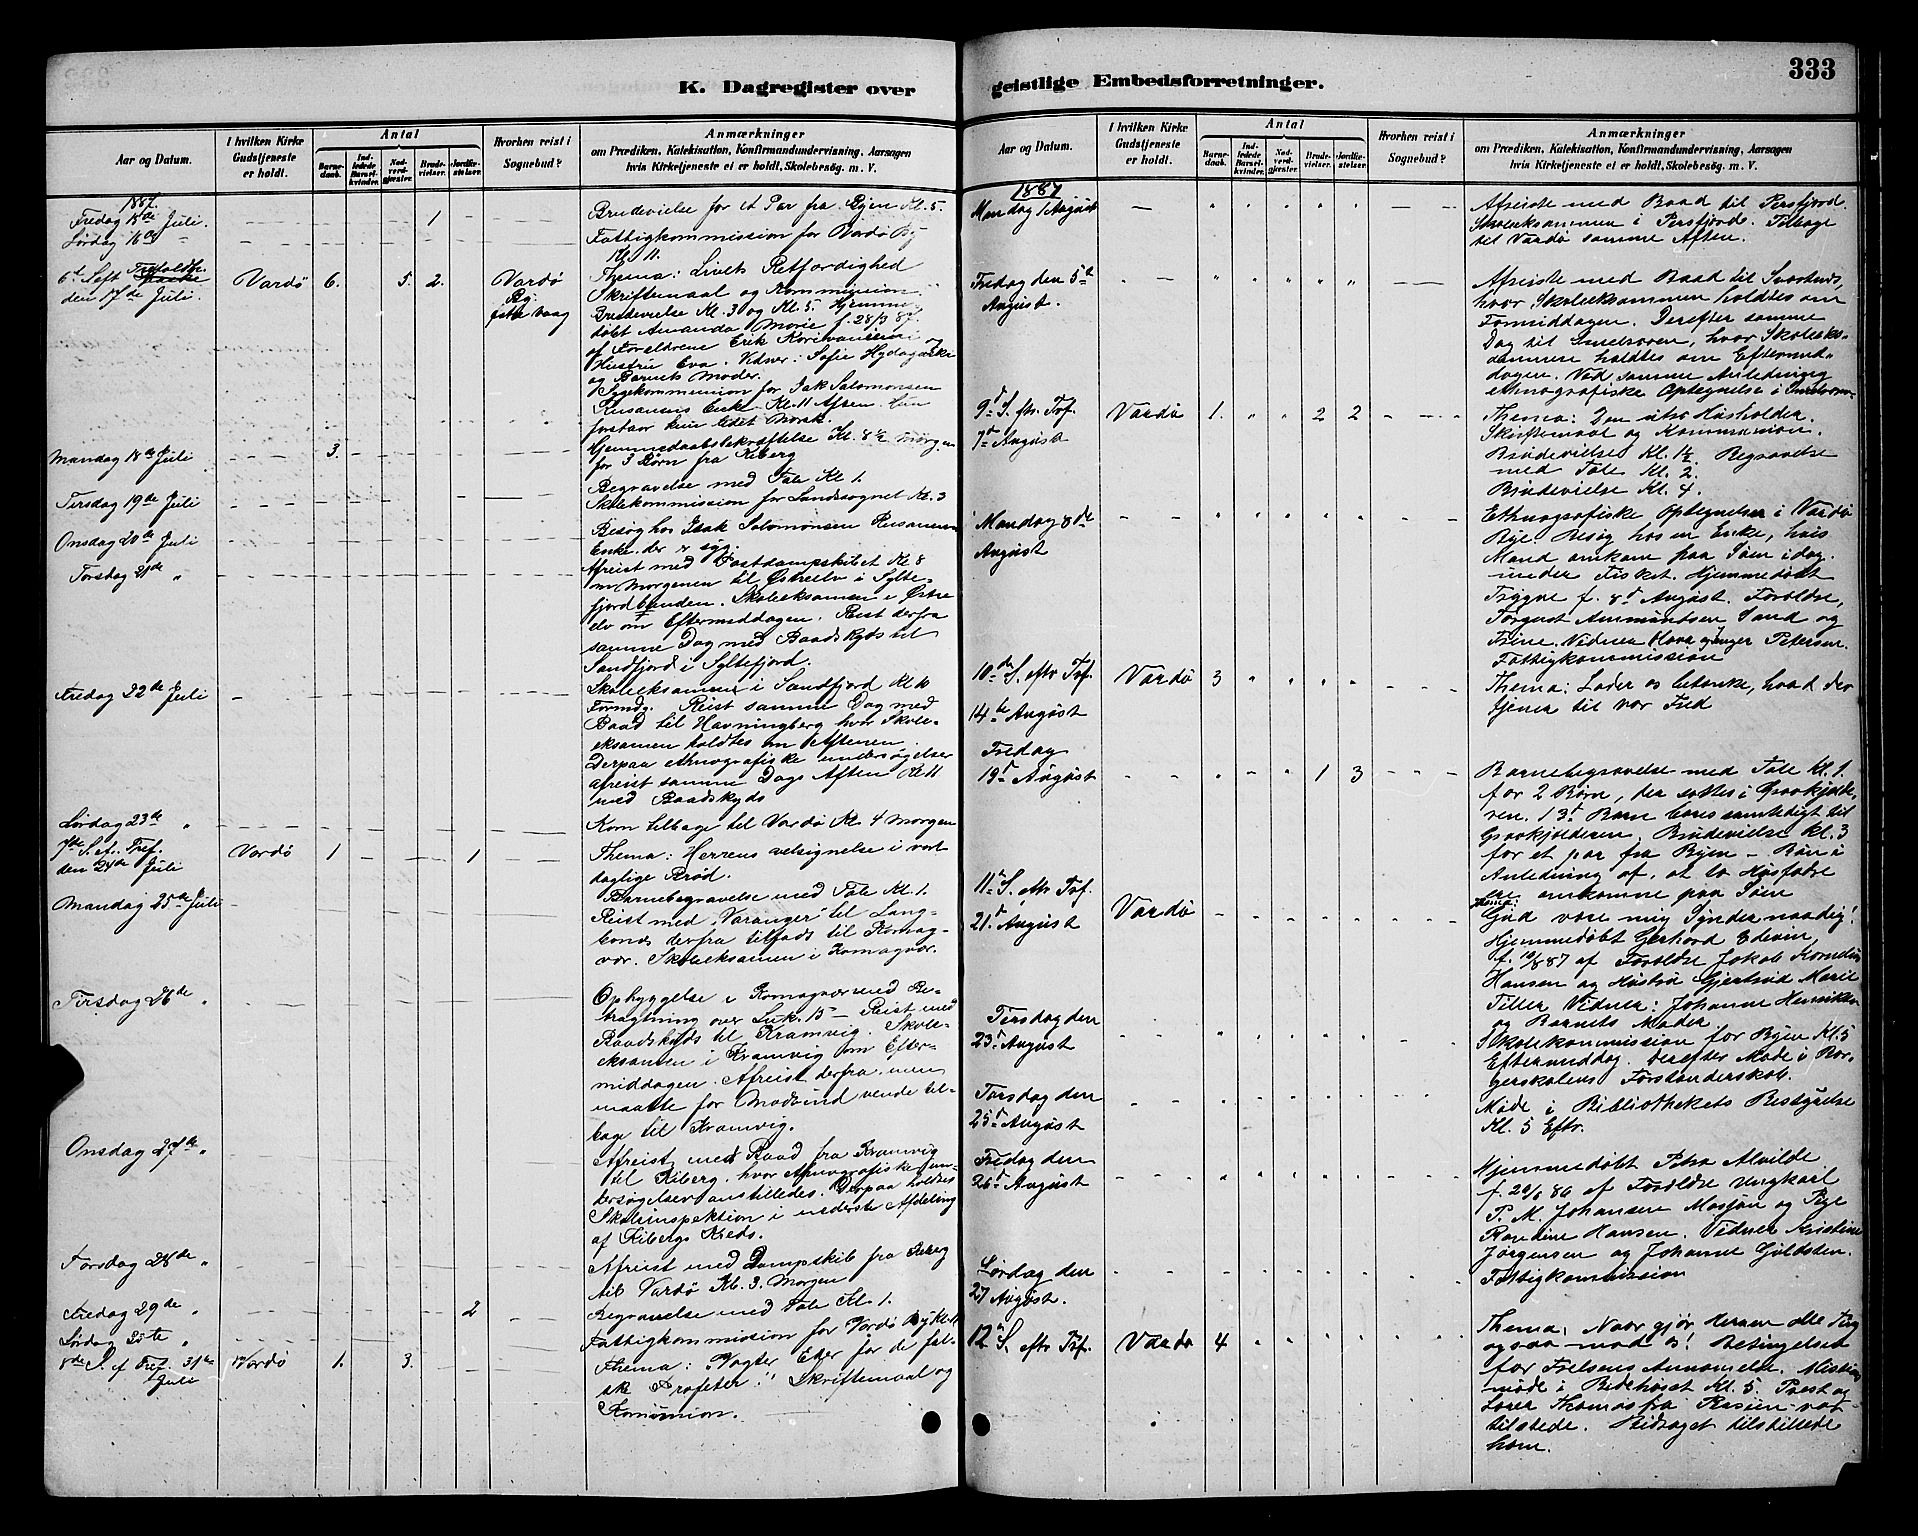 K. Dagregister over
Aar og Datum.
I hvilken Kirke Gudstjeneste er holdt.
Antal
Barnedaab.
Indledede Barselkvinder.
Nadverdgjæster.
Brudevielser.
Jordfæstelser.
Hvorhen reist i Sognebud?
Anmærkninger
om Prædiken, Katekisation, Konfirmandundervisning, Aarsagen
hvis Kirketjeneste ei er holdt, Skolebesøg. m. V.
1887.
Fredag 15de Juli. 1
Brudevielse for et Par fra Byen Kl. 5.
Lørdag 16de "
Fattigkommission for Vardø By
Kl. 11.
6te S. eft. Trefoldh.
den 17de Juli.
Vardø 6. 5. 2. Vardø
By.
Thema: Livets Retfærdighed
Skriftemaal og Kommunion
Brudevielse Kl. 3 og Kl. 5. Hjemme-
døbt Amanda Marie f. 28/3 87.
af Forældrene Erik
Hustru Eva. Vidner: Sofie
og Barnets Moder.
Sygekommunion for Isak Salomonsen
Enke Kl. 11 Aften. Hun
forstaar kun lidet Norsk.
Mandag 18de Juli 3.
Hjemmedaabsbekræftelse Kl. 8½ Morgen
for 3 Børn fra Kiberg
Tirsdag 19de Juli
Begravelse med Tale Kl. 1.
Skolekommission for Landsognet Kl. 3
Onsdag 20de Juli
Besøg hos Isak Salomonsen
Enke der er syg.
Torsdag 21de "
Afreist med Postdampskibet Kl. 8
om Morgenen til Østreelv i Sylte-
fjordbunden. Skoleeksamen i Østre
elv om Eftermiddagen. Reist derfra
samme Dag med Baadskyds til
Sandfjord i Syltefjord.
Fredag 22de Juli
Skoleeksamen i Sandfjord Kl. 10
Formdg. Reist samme Dag med
Baad til Havningberg hvor Skole-
eksamen holdtes om Aftenen.
Derpaa ethnografiske undersøgelser
afreist samme Dags Aften Kl. 11
med Baadskyds
Lørdag 23de "
Kom tilbage til Vardø Kl. 4 Morgen
7de S. ef. Tref.
den 24de Juli
Vardø 1 1
Thema: Herrens velsignelse i vort
daglige Brød.
Barnebegravelse med Tale Kl. 1.
Mandag 25de Juli
Reist med "Varanger" til Lang-
bunds derfra tilfods til Komag-
vær. Skoleeksamen i Komagvær.
Tirsdag 26de "
Opbyggelse i Komagvær med Be-
tragtning over Luk. 15 — Reist med
Baadskyds til Kramvig. Skole-
eksamen i Kramvig om Efter-
middagen. Afreist derfra, men
maatte for Modvind vende til-
bage til Kramvig.
Onsdag 27de "
Afreist med Baad fra Kramvig
til Kiberg, hvor ethnografiske un-
dersøgelser anstilledes. Derpaa holdtes
Skoleinspektion i nederste Afdeling
af Kibergs Kreds.
Torsdag 28de "
Afreist med Dampskib fra Kiberg
til Vardø Kl. 3. Morgen
Fredag 29de " 2
Begravelse med Tale Kl. 1.
Lørdag 30te "
Fattigkommission for Vardø By Kl. 11
8de S. ef Tref. 31te
Juli
Vardø 1. 3.
Thema: Vogter Eder for de fal-
ske Profeter! Skriftemaal og
Komunion.
geistlige Embedsforretninger.
333
Aar og Datum.
I hvilken Kirke Gudstjeneste er holdt.
Antal
Barnedaab.
Indledede Barselkvinder.
Nadverdgjæster.
Brudevielser.
Jordfæstelser.
Hvorhen reist i Sognebud?
Anmærkninger
om Prædiken, Katekisation, Konfirmandundervisning, Aarsagen
hvis Kirketjeneste ei er holdt, Skolebesøg. m. V.
1887
Mandag 1 August
Afreiste med Baad til Persfjord.
Skoleeksamen i Persfjord. Tilbage
til Vardø samme Aften.
Fredag den 5te
August.
Afreiste med Baad til Svartnes,
hvor Skoleeksamen holdtes om
Formiddagen. Derefter samme
Dag til Smelroren, hvor Skoleeks-
damme holdtes om Eftermid-
dagen. Ved samme Anledning
ethnografiske Optegnelse i Smelroren.
9d S. eftr. Tref.
7d August
Vardø 1. " " 2 2
Thema: Den utro Husholder.
Skriftemaal og Kommunion.
Brudevielse Kl. 1½. Begravelse
med Tale Kl. 2.
Brudevielse Kl. 4.
Mandag 8de
August
Ethnografiske Optegnelser i Vardø
Bye. Besøg hos en Enke, hvis
Mand omkom paa Søen idag
under Fisket. Hjemmedøbt
Trygve f. 8d August. Forældre,
Forgust Ammuntsen Sand og
Trine. Vidner Petersen.
Fattigkommission
10de S. eftr Tref.
14de August
Vardø 3
Thema: Lader os betænke, hvad der
tjener til vor Fred
Fredag
19d August
1 3
Barnebegravelse med Tale Kl. 1.
for 2 Børn, der sattes i Gravkjælde-
ren. 1 3d Barn bæres samtidigt til
Gravkjælderen. Brudevielse Kl. 3
for et par fra Byen — Bøn i
Anledning af, at to Husfædre
ere omkomne paa Søen
11te S. eftr Tref.
21d August
Vardø
Thema:
Gud være mig Synder naadig!
Hjemmedøbt Gerhard Edvin,
f. 10/8 87 af Forældre Jakob
Hansen og Hustru Gjertrud Marie
Tiller Vidner: Johanne Henriksen
og Barnets Moder
Tirsdag den
23d August
Skolekommission for Byen Kl. 5
Eftermiddag. Derefter Møde i Bor-
gerskolens Forstanderskab.
Torsdag den
25d August
Møde i Bibliothekets Bestyrelse
Kl. 5 Eftr.
Fredag den
26d August
Hjemmedøbt Petra Alvilde
f. af Forældre Ungkarl
P. M. Johansen Mosjøn og Pige
Randine Hansen. Vidner Kristine
Jørgensen og Johanne Guldsten.
Lørdag den
27 August.
Fattigkommission
12te S. eftr Tref.
Vardø 4
Thema: Naar gjør Herren alle Ting
ogsaa mod os! Betingelsen
for Frelsens Annamelse. Missions
møde i Bedehuset Kl. 5. Præst og
Lærer Thomas fra var
tilstede. Bidraget tilstillede
ham.